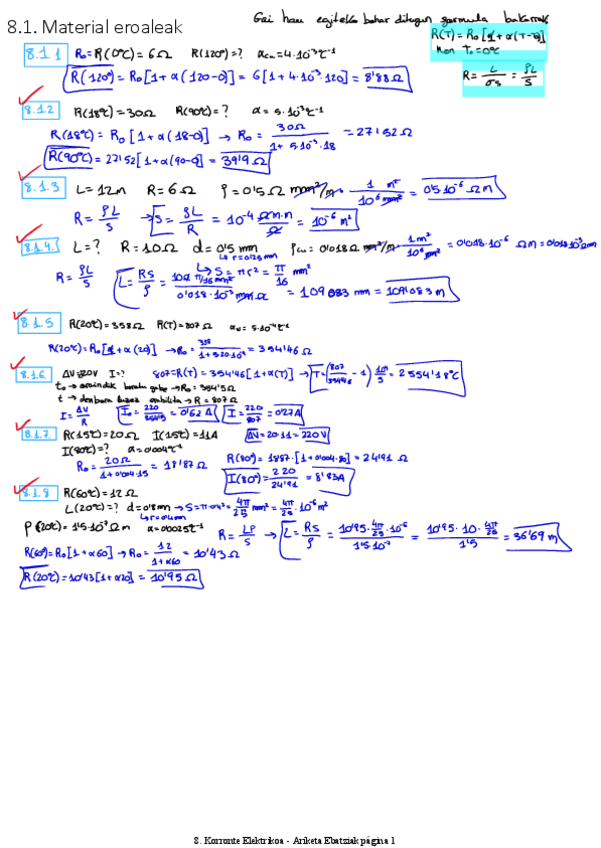 8.1. Material eroaleak
Gai hau egiteko behar ditugun formula bakarrak
R(T) = R₀[1+α(T-T₀)]
non T₀=0°C
R = L/σS = ρL/S
8.1.1 R₀ = R(0°C) = 6Ω R(120°) = ? αcu = 4·10⁻³°C⁻¹
R(120°) = R₀[1+α(120-0)] = 6[1+4·10⁻³·120] = 8'88Ω
8.1.2 R(18°C) = 30Ω R(90°C) = ? α = 5·10⁻³°C⁻¹
R(18°C) = R₀[1+α(18-0)] → R₀ = 30Ω/1+5·10⁻³·18 = 27'52Ω
R(90°C) = 27'52[1+α(90-0)] = 39'9Ω
8.1.3 L = 12m R = 6Ω ρ = 0'5Ω mm²/m · 1 m²/10⁶mm² = 0'5·10⁻⁶ Ωm
R = ρL/S → S = ρL/R = 10⁻⁶ Ωm·m/Ω = 10⁻⁶ m²
8.1.4. L = ? R = 10Ω d = 0'5 mm ρcu = 0'018Ω mm²/m · 1m²/10⁶mm² = 0'018·10⁻⁶ Ωm
↳ r = 0'25mm
↳ S = πr² = π/16 mm²
R = ρL/S L = RS/ρ = 10Ω π/16 mm²/0'018·10⁻³mm·Ω = 109083 mm = 109'083 m
8.1.5 R(20°C) = 358Ω R(T) = 807Ω α = 5·10⁻⁴°C⁻¹
R(20°C) = R₀[1+α(20)] → R₀ = 358/1+5·20·10⁻⁴ = 354'46Ω
807 = R(T) = 354'46[1+α(T)] → T = (807/354'46 - 1) 10⁴/5 = 2554'18°C
8.1.6 I = ?
R₀ = 354'5Ω
R = 807Ω
I = ΔV/R I₀ = 220/354'5 = 0'62A I = 220/807 = 0'27A
8.1.7 R(15°C) = 20Ω I(15°C) = 11A ΔV = 20·11 = 220V
I(80°C) = ? α = 0'004°C⁻¹
R₀ = 20Ω/1+0'004·15 = 18'87Ω R(80°) = 18'87·[1+0'004·80] = 24'91 Ω
I(80°) = 220/24'91 = 8'83A
8.1.8 R(60°C) = 12Ω
L(20°C) = ? d = 0'8mm → S = π·0'4² = 4π/25 mm² = 4π/25·10⁻⁶m²
↳ r = 0'4mm
ρ(20°C) = 1'5·10⁻⁷Ωm α = 0'0025°C⁻¹ R = Lρ/S → L = RS/ρ = 10'95·4π/25·10⁻⁶/1'5·10⁻⁷ = 10'95·10·4π/25/1'5 = 36'69 m
R(60°) = R₀[1+α60] → R₀ = 12/1+α60 = 10'43Ω
R(20°C) = 10'43[1+α20] = 10'95Ω
8. Korronte Elektrikoa - Ariketa Ebatziak página 1